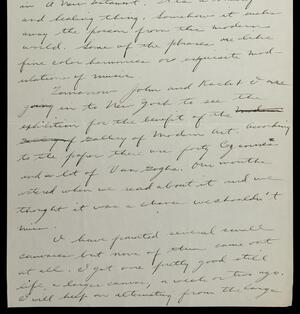 in a New Testament. It is a
and healing thing. Somehow it
away the poison from the modern
world. Some of the phrases are like
fine color harmonies or exquisite mod-
ulations of music.
Tomorrow John and Rachel & I are
going in to New York to see the
exhibition for the benefit of the
Gallery of Modern Art. According
to the paper there are forty Cezannes
and a lot of Van Goghs. Our mouths
watered when we read about it and we
thought it was a chance we shouldn't
miss.
I have painted several small
canvases but none of them came out
at all. I got one pretty good still
life, a larger canvas, a week or two ago.
I will keep on alternating from the large